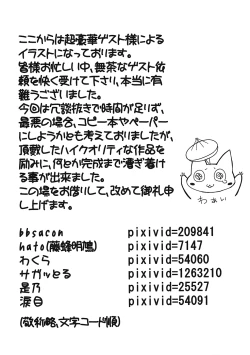 ここからは超豪華ゲスト様による
イラストになっております。
皆様お忙しい中、無茶なゲスト依
頼を快く受けて下さり、本当に有
難うございました。
今回は冗談抜きで時間が足りず、
最悪の場合、コピー本やペーパー
にしようかとも考えておりましたが、
頂戴したハイクオリティな作品を
励みに、何とか完成まで漕ぎ着け
る事が出来ました。
この場をお借りして、改めて御礼申
し上げます。
わぁい
bbsacon pixivid=209841
hato(藤蜂明鳴) pixivid=7147
わくら pixivid=54060
サガッとる pixivid=1263210
是乃 pixivid=25527
涙目 pixivid=54091
(敬称略、文字コード順)